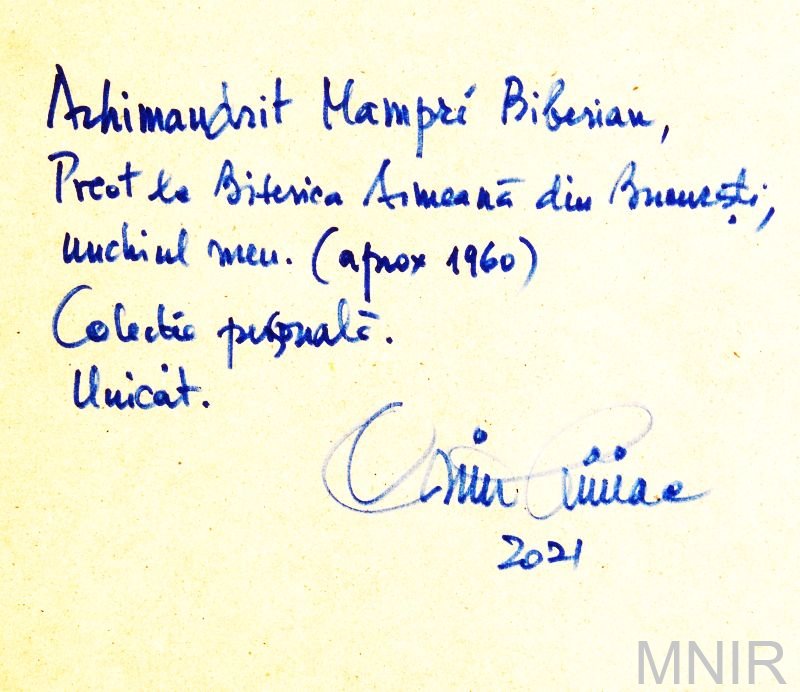 Arhimandrit Mampré Biberian,
Preot la Biserica Armeană din București,
unchiul meu. (aprox 1960)
Colectie personală.
Unicat.
2021
MNIR